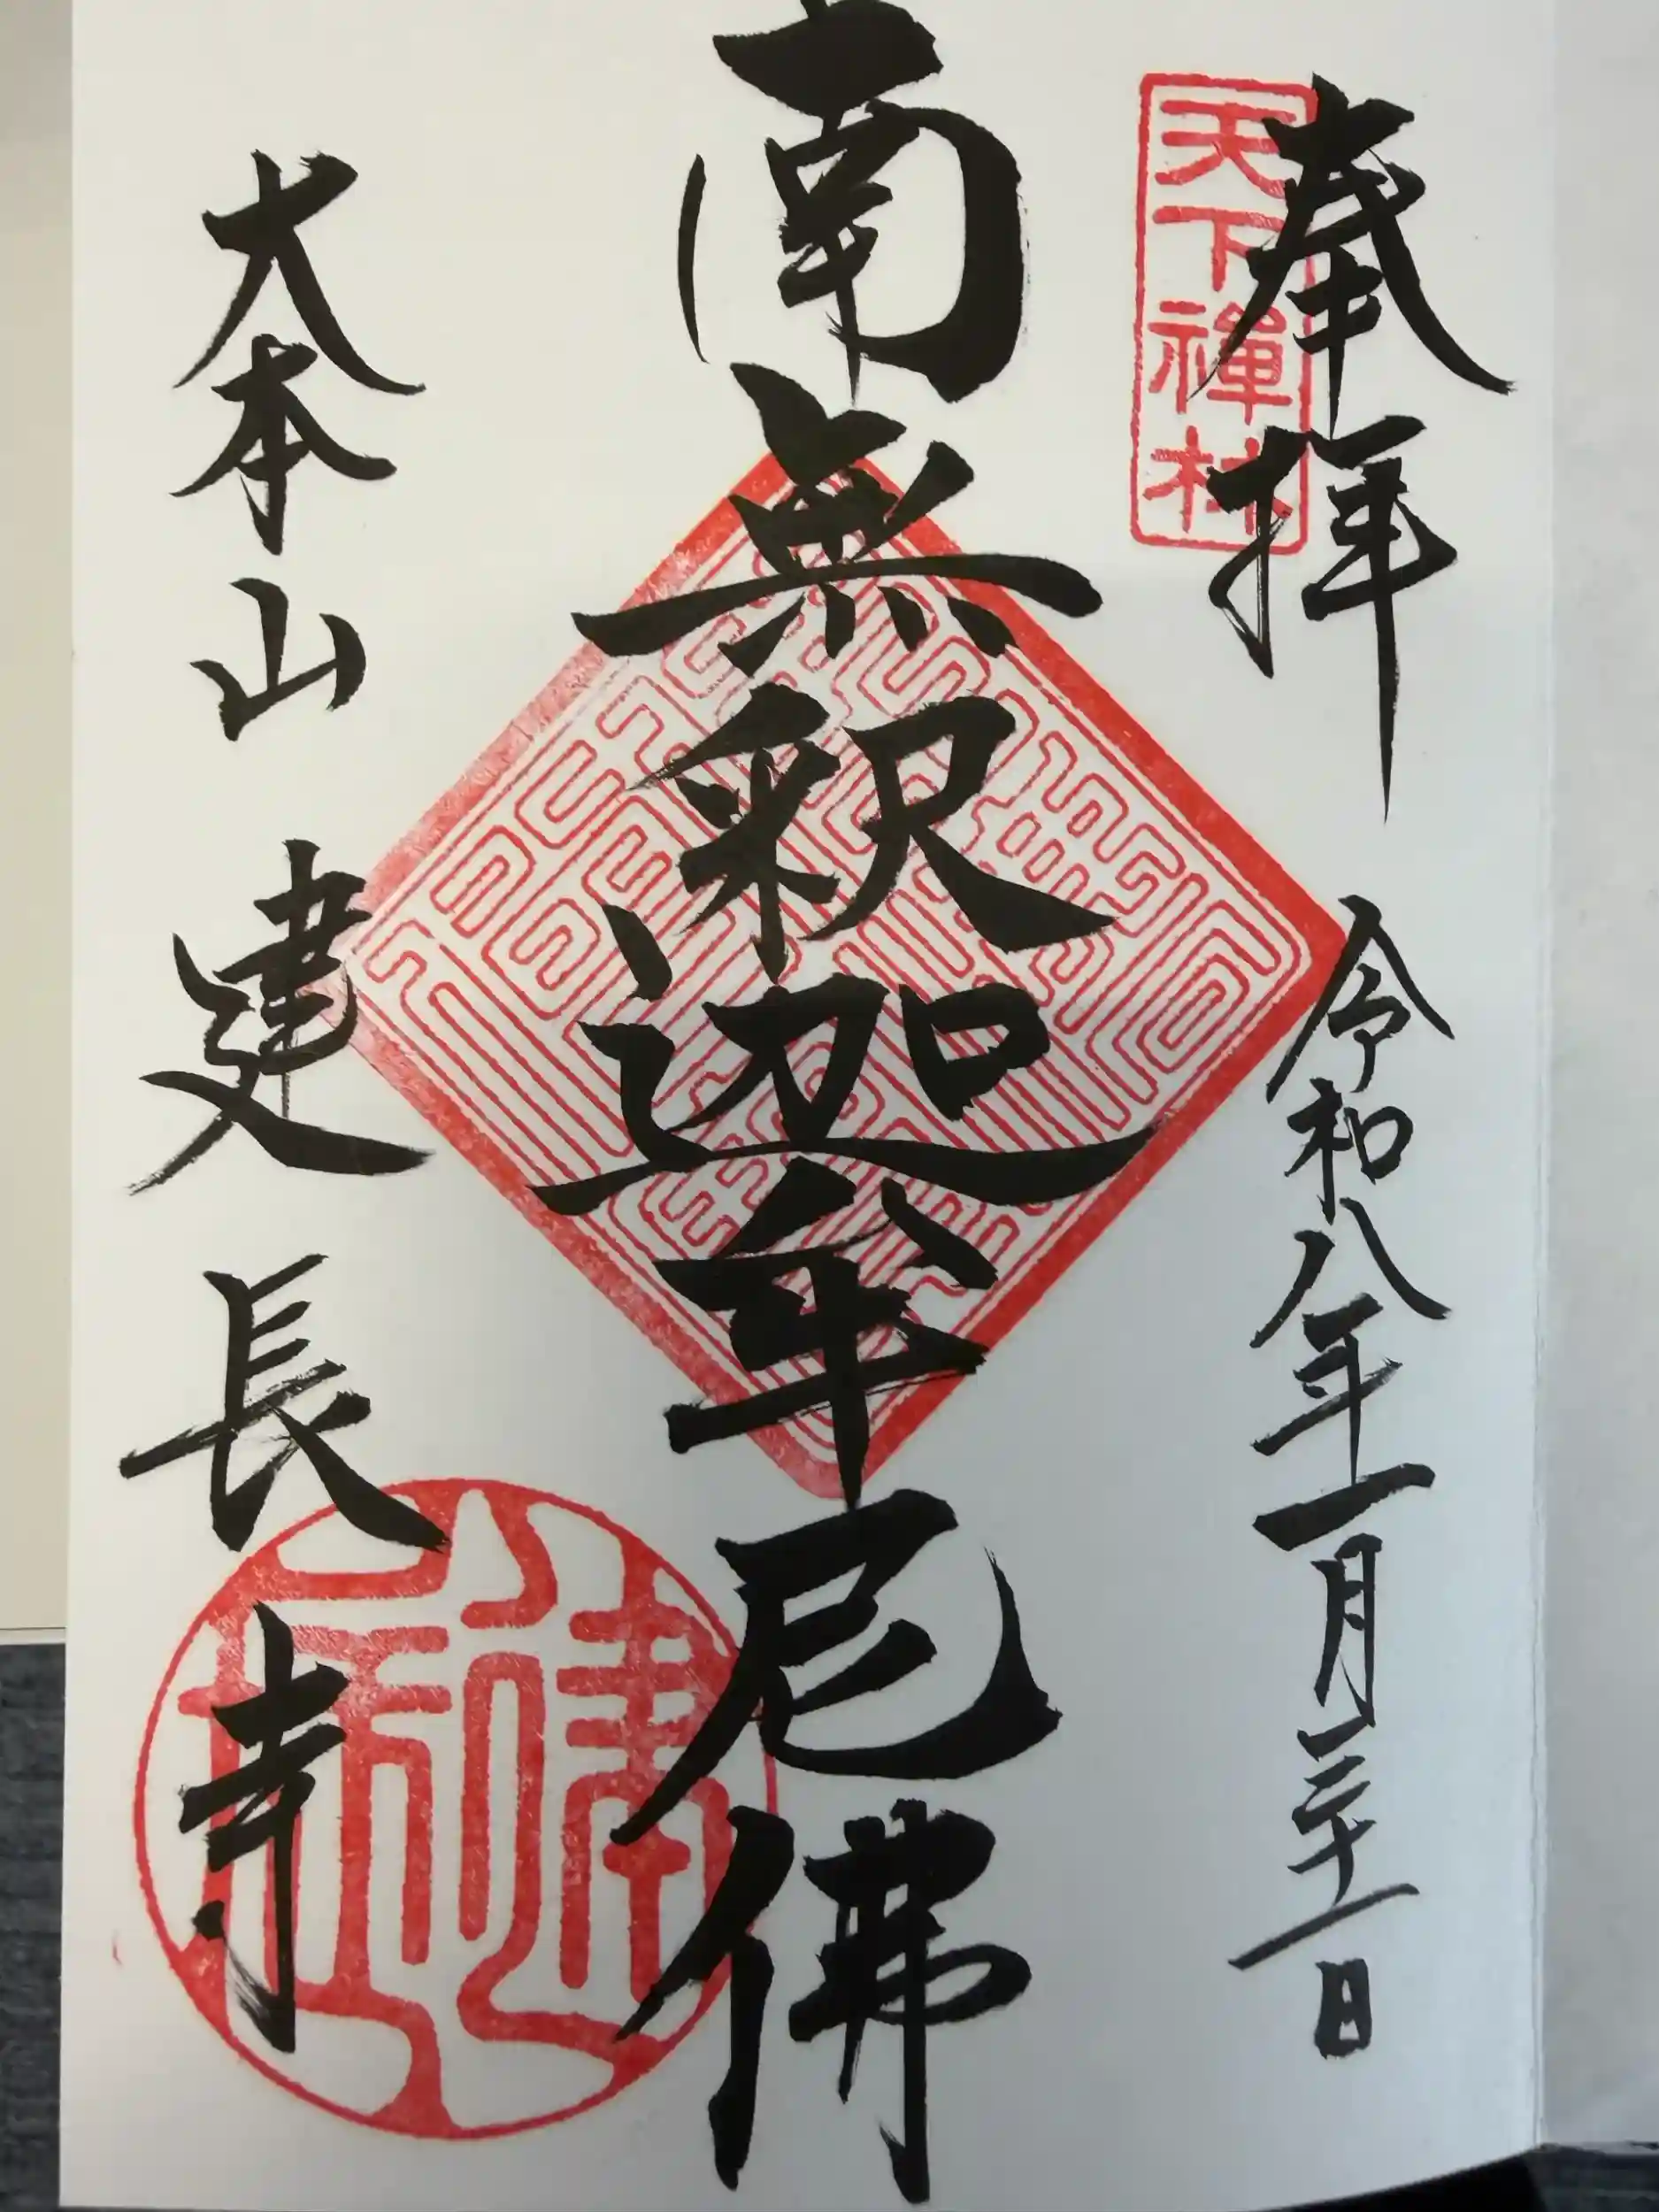 奉拝
天下禪林
令和八年一月三十一日
南無釈迦牟尼佛
大本山 建長寺